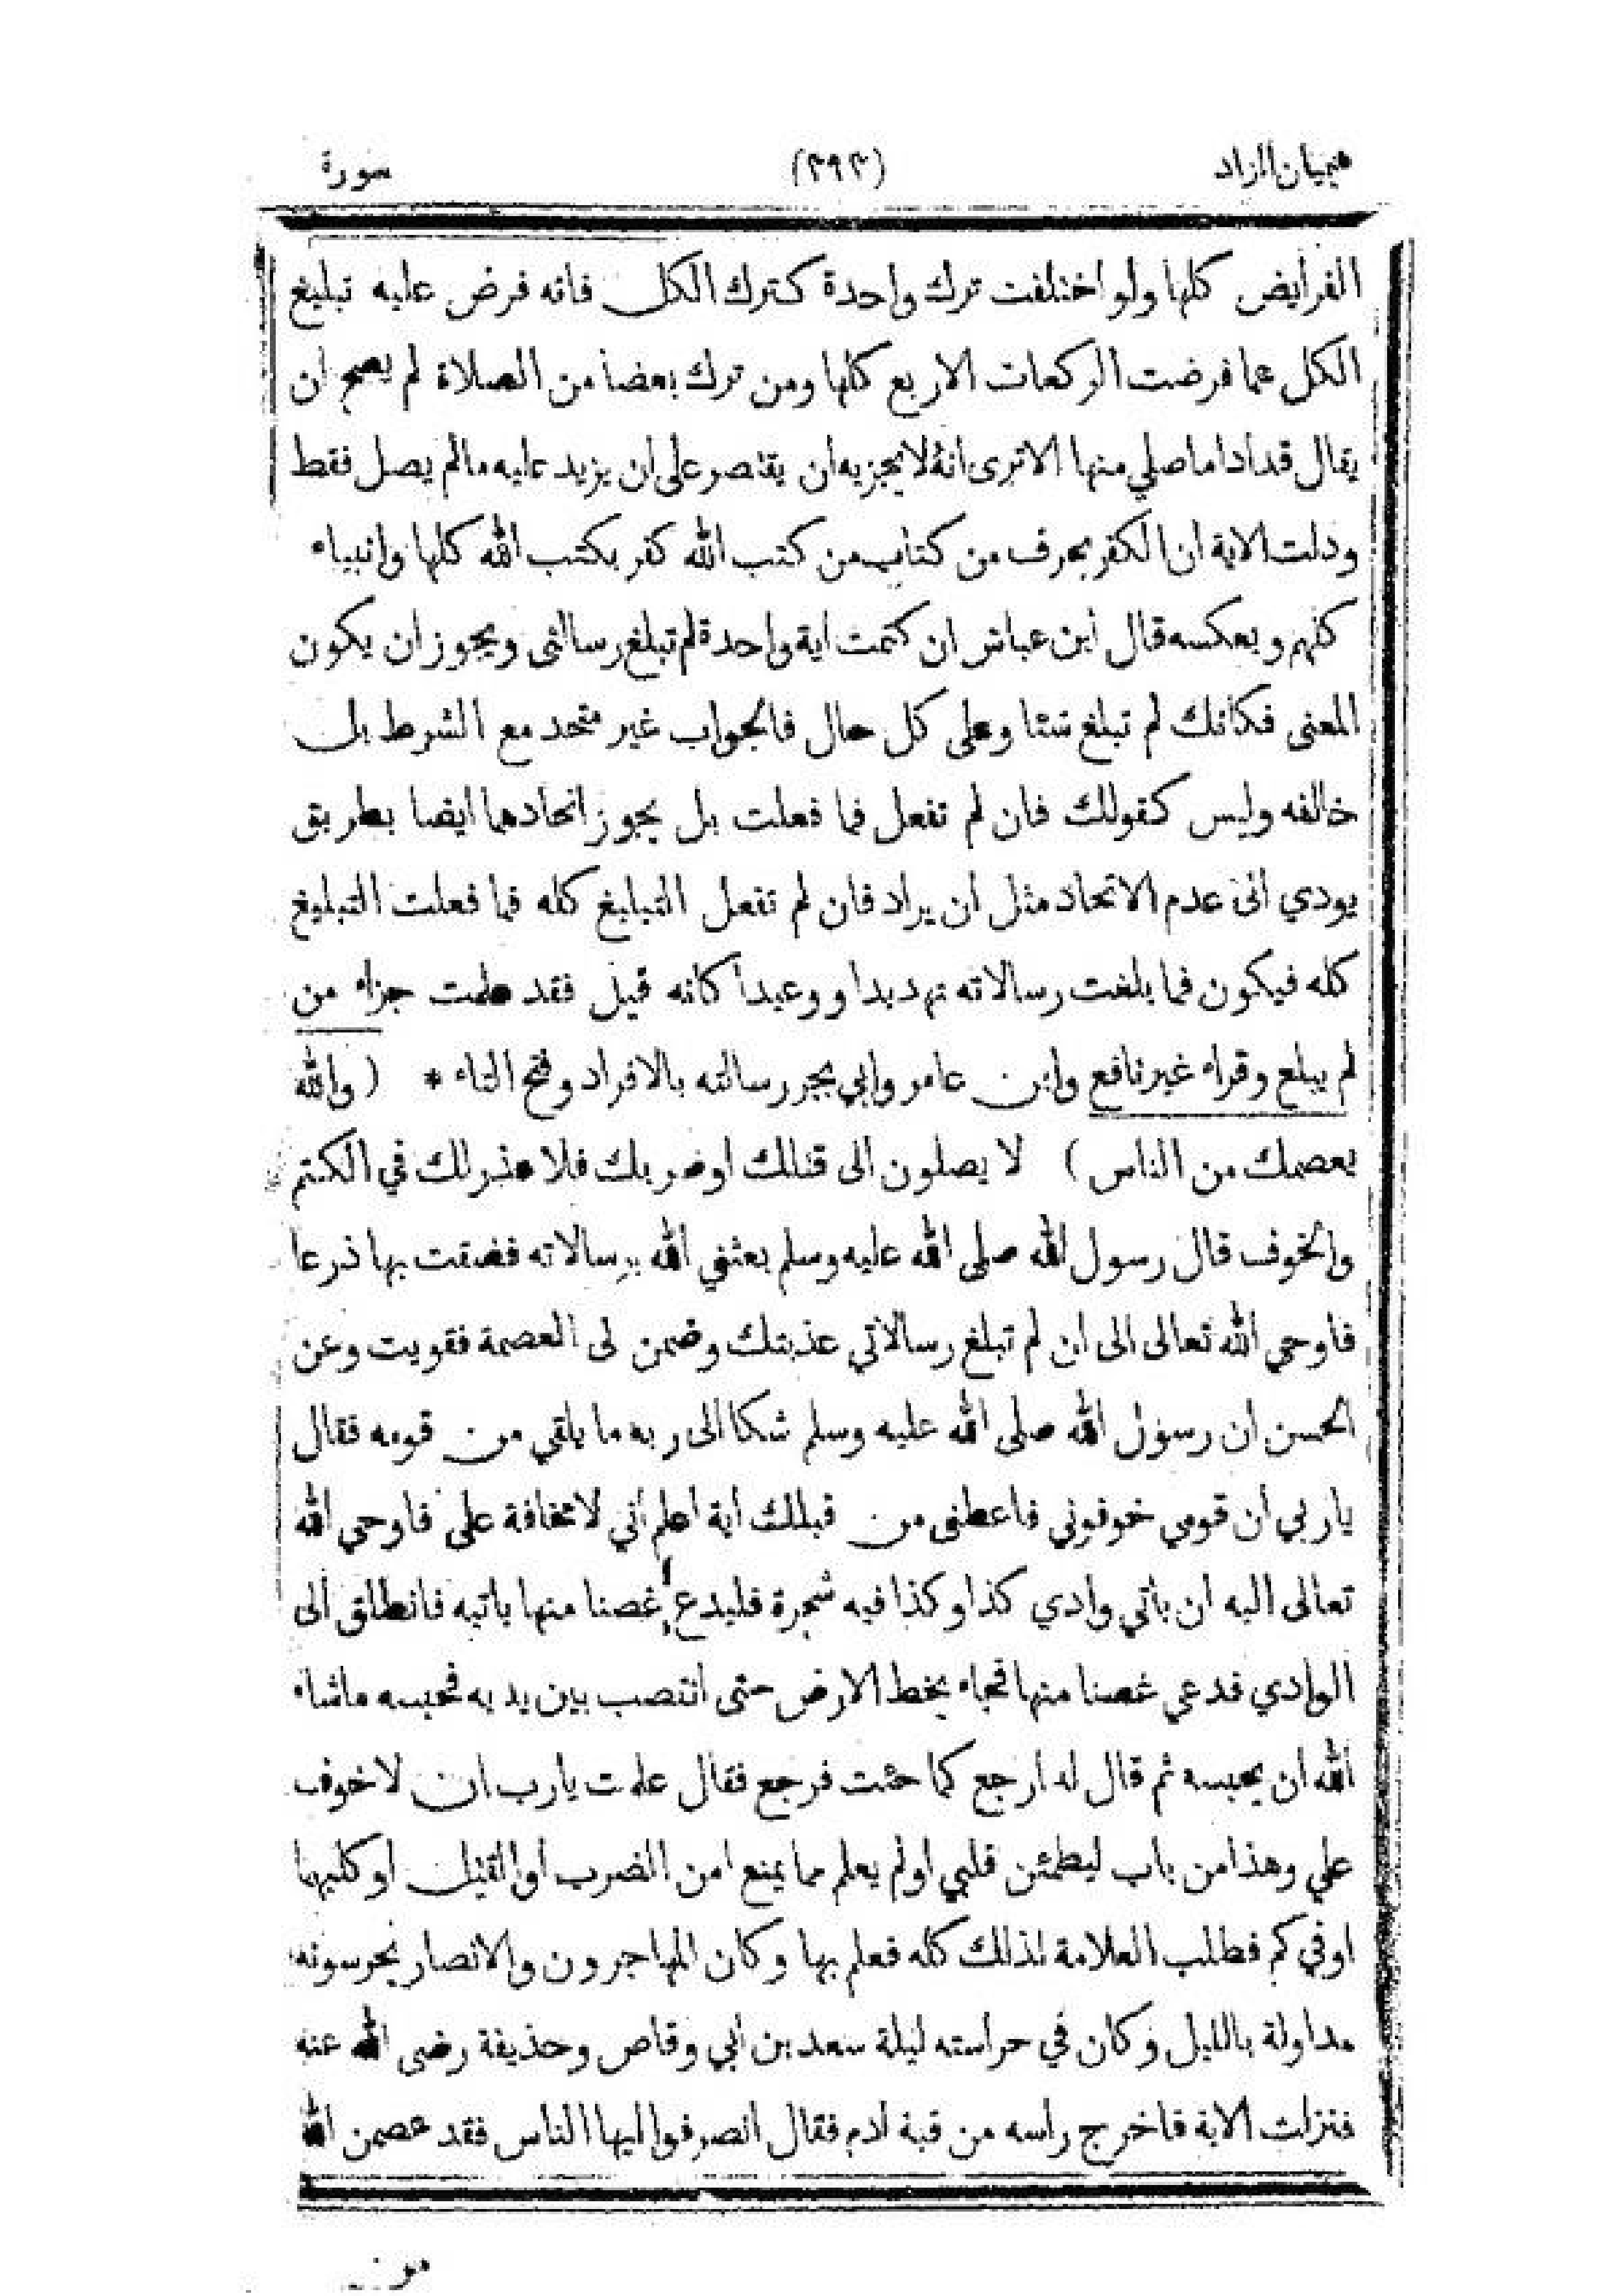 هيميان الزاد (٣٩٣) سورة
الفرايض كلها ولو اختلفت ترك واحدة كترك الكل فانه فرض عليه تبليغ
الكل عما فرضت الركعات الاربع كلها ومن ترك بعضا من الصلاة لم يصح ان
يقال قد ادا ما صلي منها الا ترى انه لا يجزيه ان يقتصر على ان يزيد عليه مالم يصل فقط
ودلت الاية ان الكفر بحرف من كتاب من كتب الله كفر بكتب الله كلها وانبياء
كلهم وبعكسه قال ابن عباس ان كتمت اية واحدة لم تبلغ رسالتى ويجوز ان يكون
المعنى فكانك لم تبلغ شئا وعلى كل حال فالجواب غير متحد مع الشرط بل
خالفه وليس كقولك فان لم تفعل فما فعلت بل يجوز اتحادهما ايضا بطريق
يودي الى عدم الاتحاد مثل ان يراد فان لم تفعل التبليغ كله فما فعلت التبليغ
كله فيكون فما بلغت رسالاته تهديدا ووعيدا كانه قيل فقد علمت جزاء من
لم يبلغ وقراء غير نافع وابن عامر وابي بجر رسالته بالافراد وفتح التاء * (والله
يعصمك من الناس) لا يصلون الى قتلك او ضربك فلا عذر لك في الكتم
والخوف قال رسول الله صلى الله عليه وسلم بعثني الله برسالاته فضقت بها ذرعا
فاوحي الله تعالى الى ان لم تبلغ رسالاتي عذبتك وضمن لى العصمة فقويت وعن
الحسن ان رسول الله صلى الله عليه وسلم شكا الى ربه ما يلقي من قومه فقال
يا ربي ان قومي خوفوني فاعطنى من قبلك اية اعلم اني لا مخافة على فاوحي الله
تعالى اليه ان يأتي وادي كذا وكذا فيه شجرة فليدع غصنا منها ياتيه فانطلق الى
الوادي فدعي غصنا منها فجاء يخط الارض حتى انتصب بين يديه فحبسه ماشاء
الله ان يحبسه ثم قال له ارجع كما جئت فرجع فقال علمت يارب ان لا خوف
علي وهذا من باب ليطمئن قلبي اولم يعلم مما يمنع امن الضرب او القتل او كليهما
اوفي كم فطلب العلامة لذلك كله فعلم بها وكان المهاجرون والانصار يحرسونه
مداولة بالليل وكان في حراسته ليلة سعد بن ابي وقاص وحذيفة رضى الله عنه
فنزلت الاية فاخرج راسه من قبة ادم فقال انصرفوا ايها الناس فقد عصمن الله
من